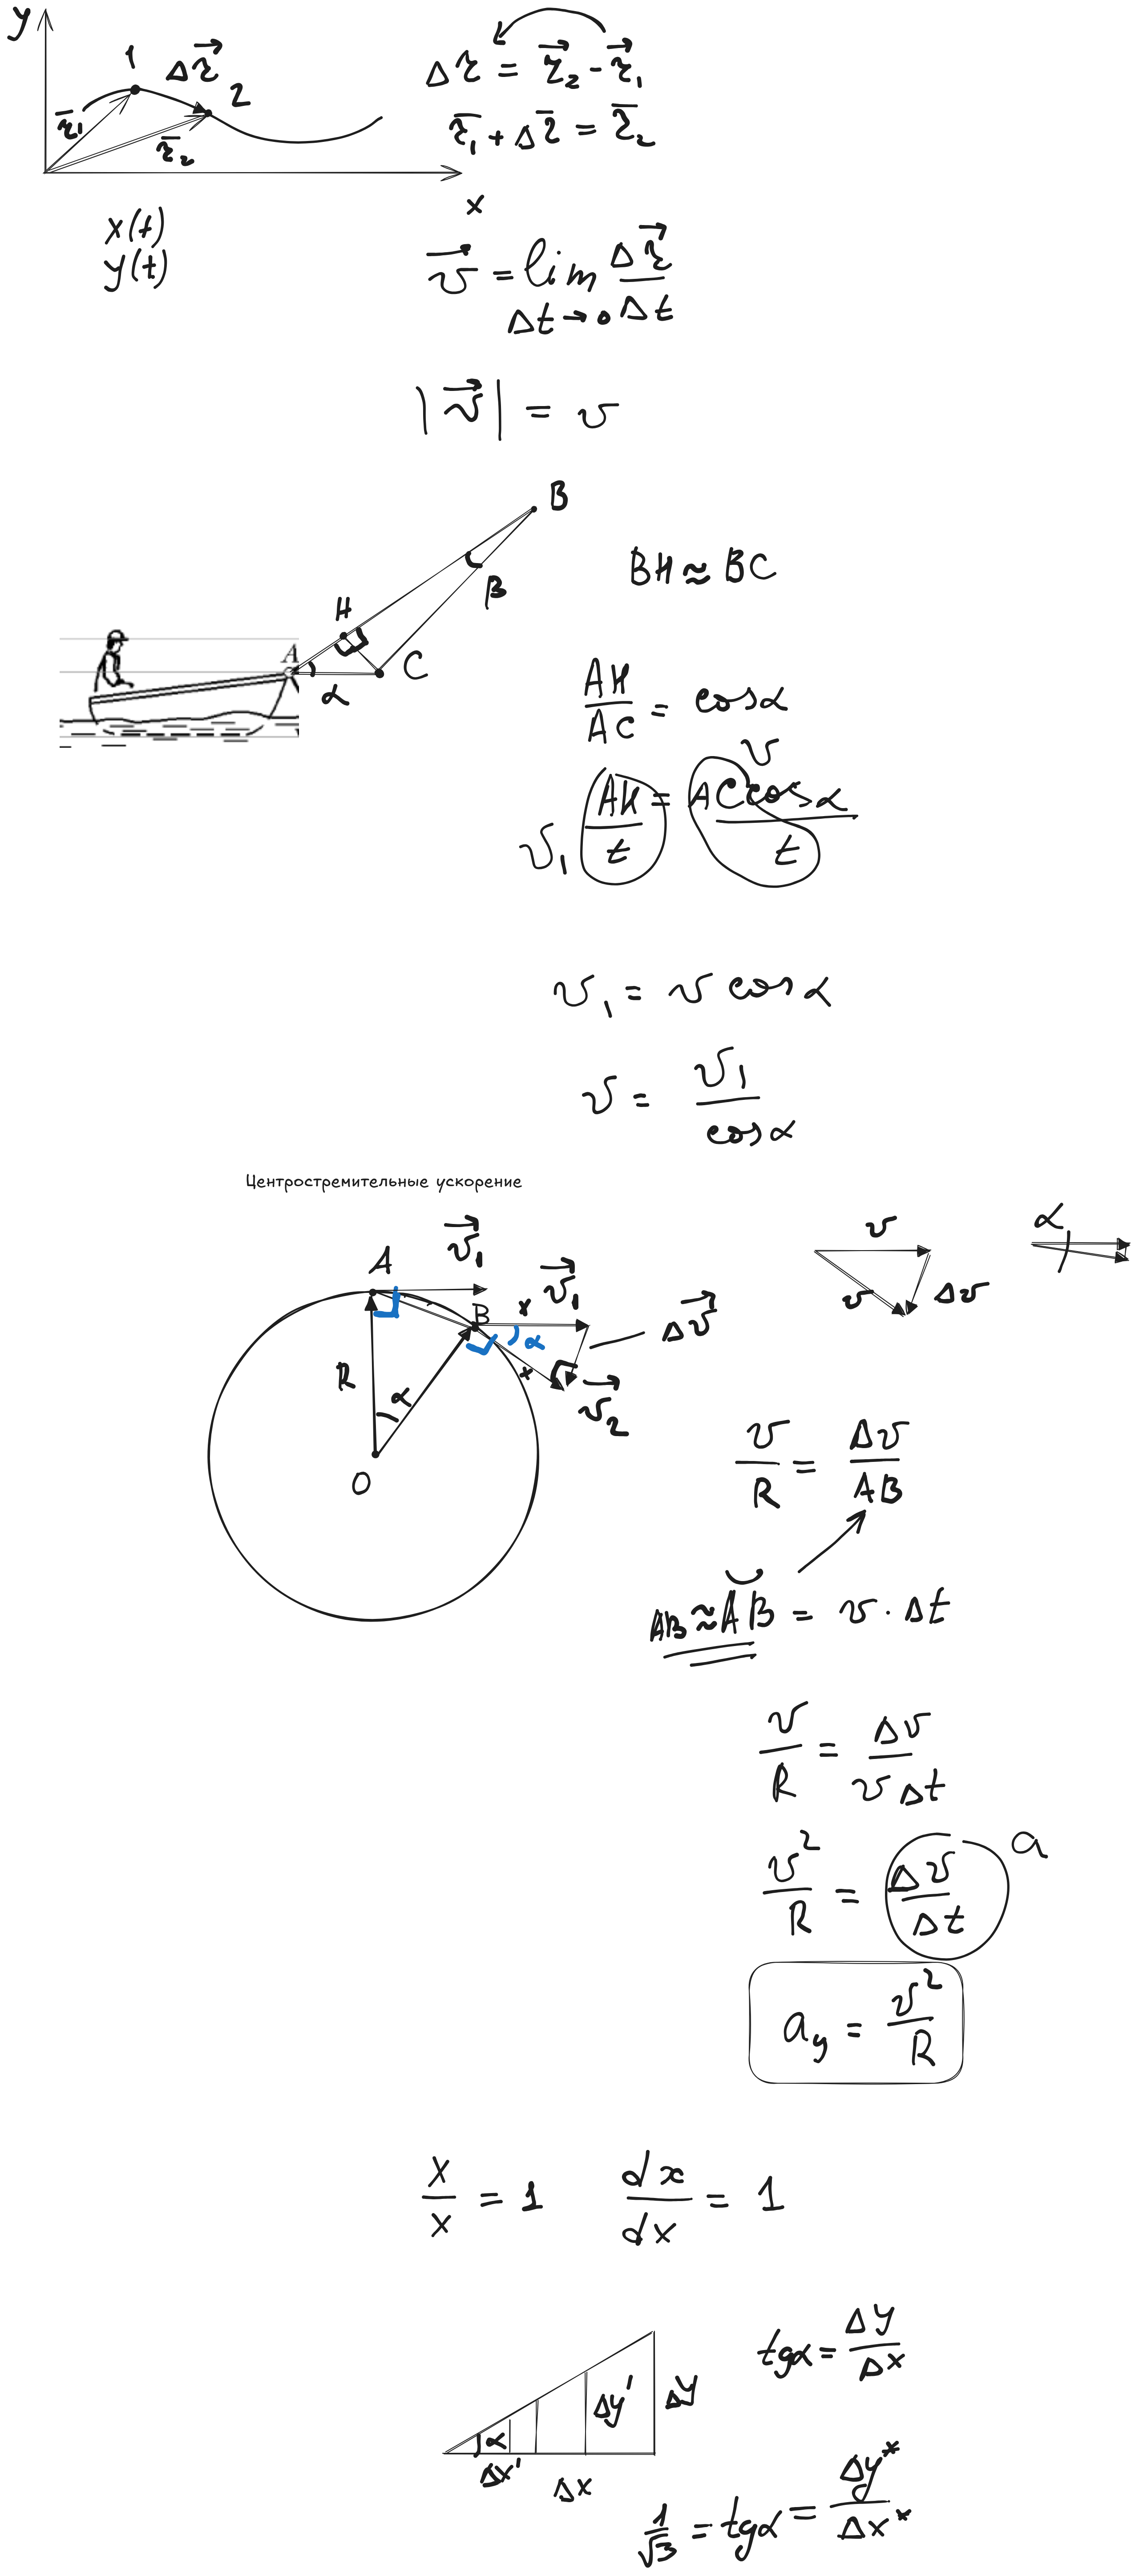 y
1
Δr⃗
2
r̄₁
r̄₂
x
x(t)
y(t)
Δr = r⃗₂ - r⃗₁
r̄₁ + Δr̄ = r̄₂
v⃗ = lim Δr⃗/Δt
Δt→0
|v⃗| = v
B
β
H
A
C
α
BH ≈ BC
AH/AC = cosα
v
v₁ AH/t = AC cosα/t
v₁ = v cosα
v = v₁/cosα
Центростремительные ускорение
A
v⃗₁
B
x
v⃗₁
α
x
Δv⃗
v⃗₂
R
α
O
v
v
Δv
α
v/R = Δv/AB
AB ≈ AB = v · Δt
v/R = Δv/vΔt
v²/R = Δv/Δt
a
aᵧ = v²/R
x/x = 1
dx/dx = 1
α
Δx'
Δx
Δy'
Δy
tgα = Δy/Δx
1/√3 = tgα = Δy*/Δx*